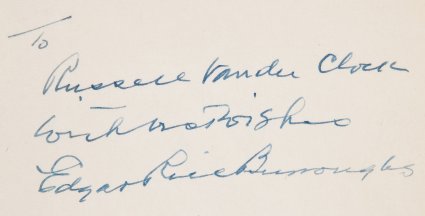 To
Russell Vander Clock
with best wishes
Edgar Rice Burroughs